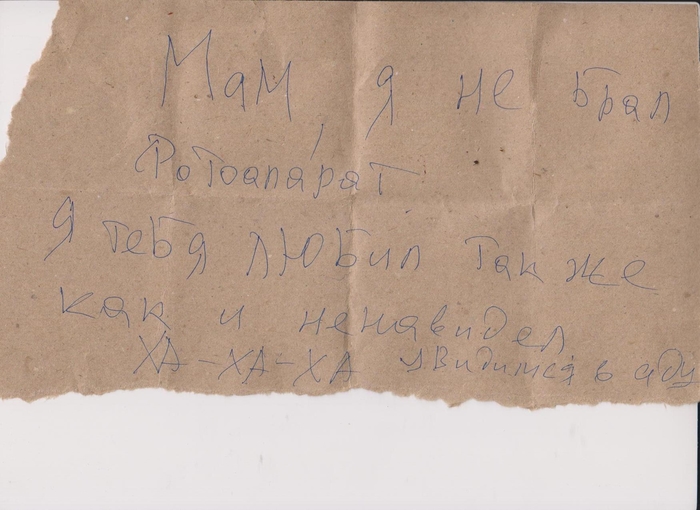 Мам, я не брал
Фотоапарат
Я тебя любил так же
как и ненавидел
ХА-ХА-ХА увидимся в аду